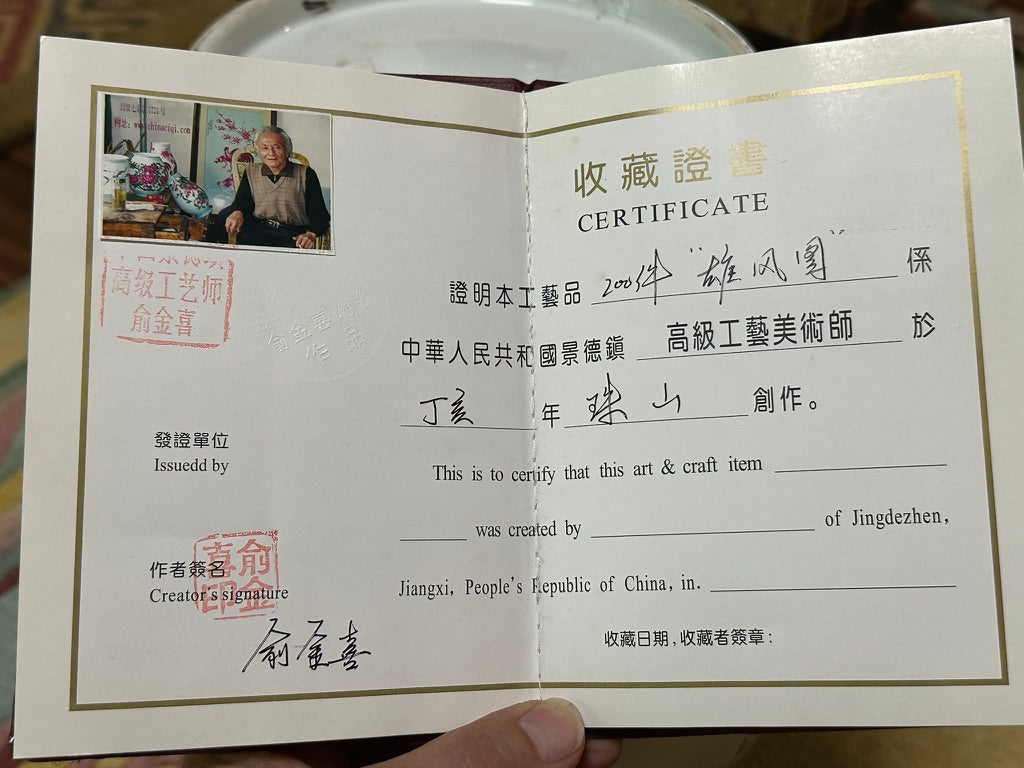 网址：www.chinaciqi.com
高级工艺师
俞金喜
俞金喜
作品
發證單位
Issuedd by
作者簽名
Creator's signature
喜俞
印金
俞金喜
收藏證書
CERTIFICATE
證明本工藝品 200件 "雄风图" 係
中華人民共和國景德鎮 高級工藝美術師 於
丁亥 年 珠山 創作。
This is to certify that this art & craft item
was created by of Jingdezhen,
Jiangxi, People's Republic of China, in.
收藏日期,收藏者簽章: